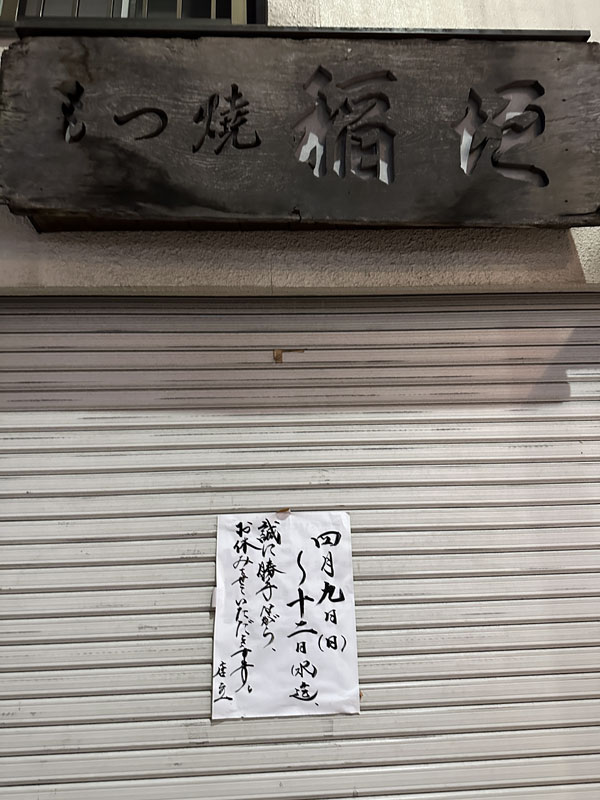 もつ燒 稲垣
四月九日(日)
〜十二日(水)迄、
誠に勝手ながら、
お休みさせていただきます。
店主